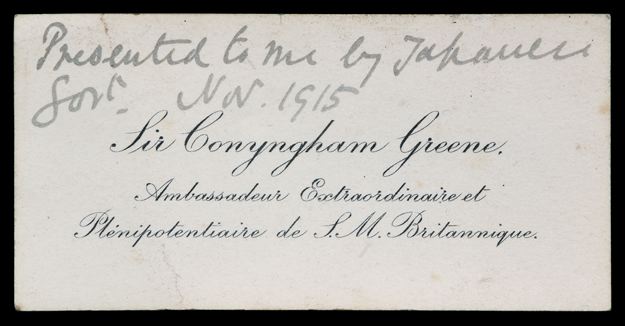 Presented to me by Japanese
Govt. Nov. 1915
Sir Conyngham Greene.
Ambassadeur Extraordinaire et
Plénipotentiaire de S.M. Britannique.